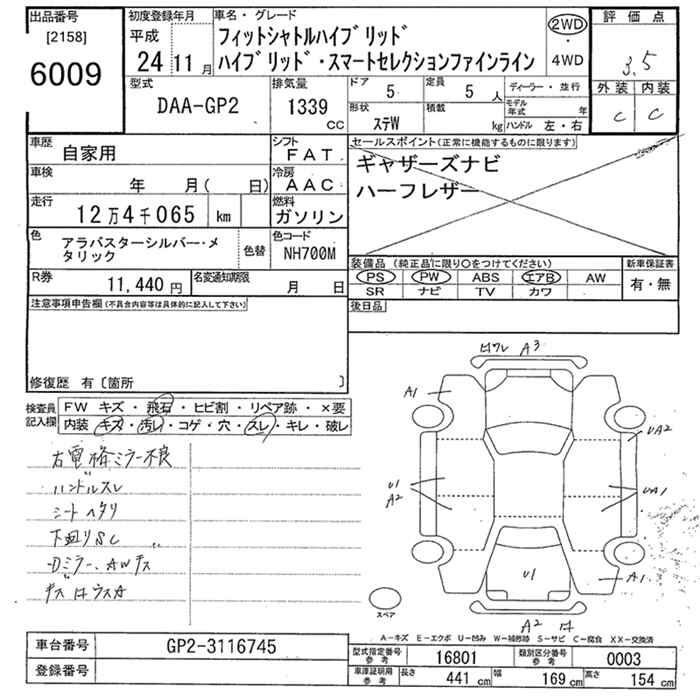 出品番号 [2158] 6009
初度登録年月 平成 24 11月
車名・グレード
フィットシャトルハイブリッド
ハイブリッド・スマートセレクションファインライン
2WD・4WD
評価点 3.5
外装 内装
C C
型式 DAA-GP2
排気量 1339 CC
ドア 5
定員 5 人
ディーラー・並行
形状 ステW
積載 kg
モデル年式 年
ハンドル 左・右
車歴 自家用
シフト FAT
セールスポイント(正常に機能するものに限ります)
ギャザーズナビ
ハーフレザー
車検 年 月( 日)
冷房 AAC
走行 12万4千065 km
燃料 ガソリン
色 アラバスターシルバー・メタリック
色替
色コード NH700M
装備品(純正品に限り○をつけてください)
新車保証書
PS PW ABS エアB AW
有・無
SR ナビ TV カワ
R券 11,440 円
名変通知期限 月 日
後日品
注意事項申告欄(不具合内容等は具体的に記入して下さい)
修復歴 有〔箇所 〕
検査員記入欄
FW キズ・飛石・ヒビ割・リペア跡・×要
内装 キズ・汚レ・コゲ・穴・スレ・キレ・破レ
右電格ミラー不良
ハンドルスレ
シートヘタリ
下廻りSC
Dミラー、AWキズ
A3
A1
UA2
U1
A2
UA1
U1
A1
A2
スペア
A-キズ E-エクボ U-凹み W-補修跡 S-サビ C-腐食 XX-交換済
車台番号 GP2-3116745
登録番号
型式指定番号 参考 16801
類別区分番号 参考 0003
車庫証明用 参考
長さ 441 cm
幅 169 cm
高さ 154 cm